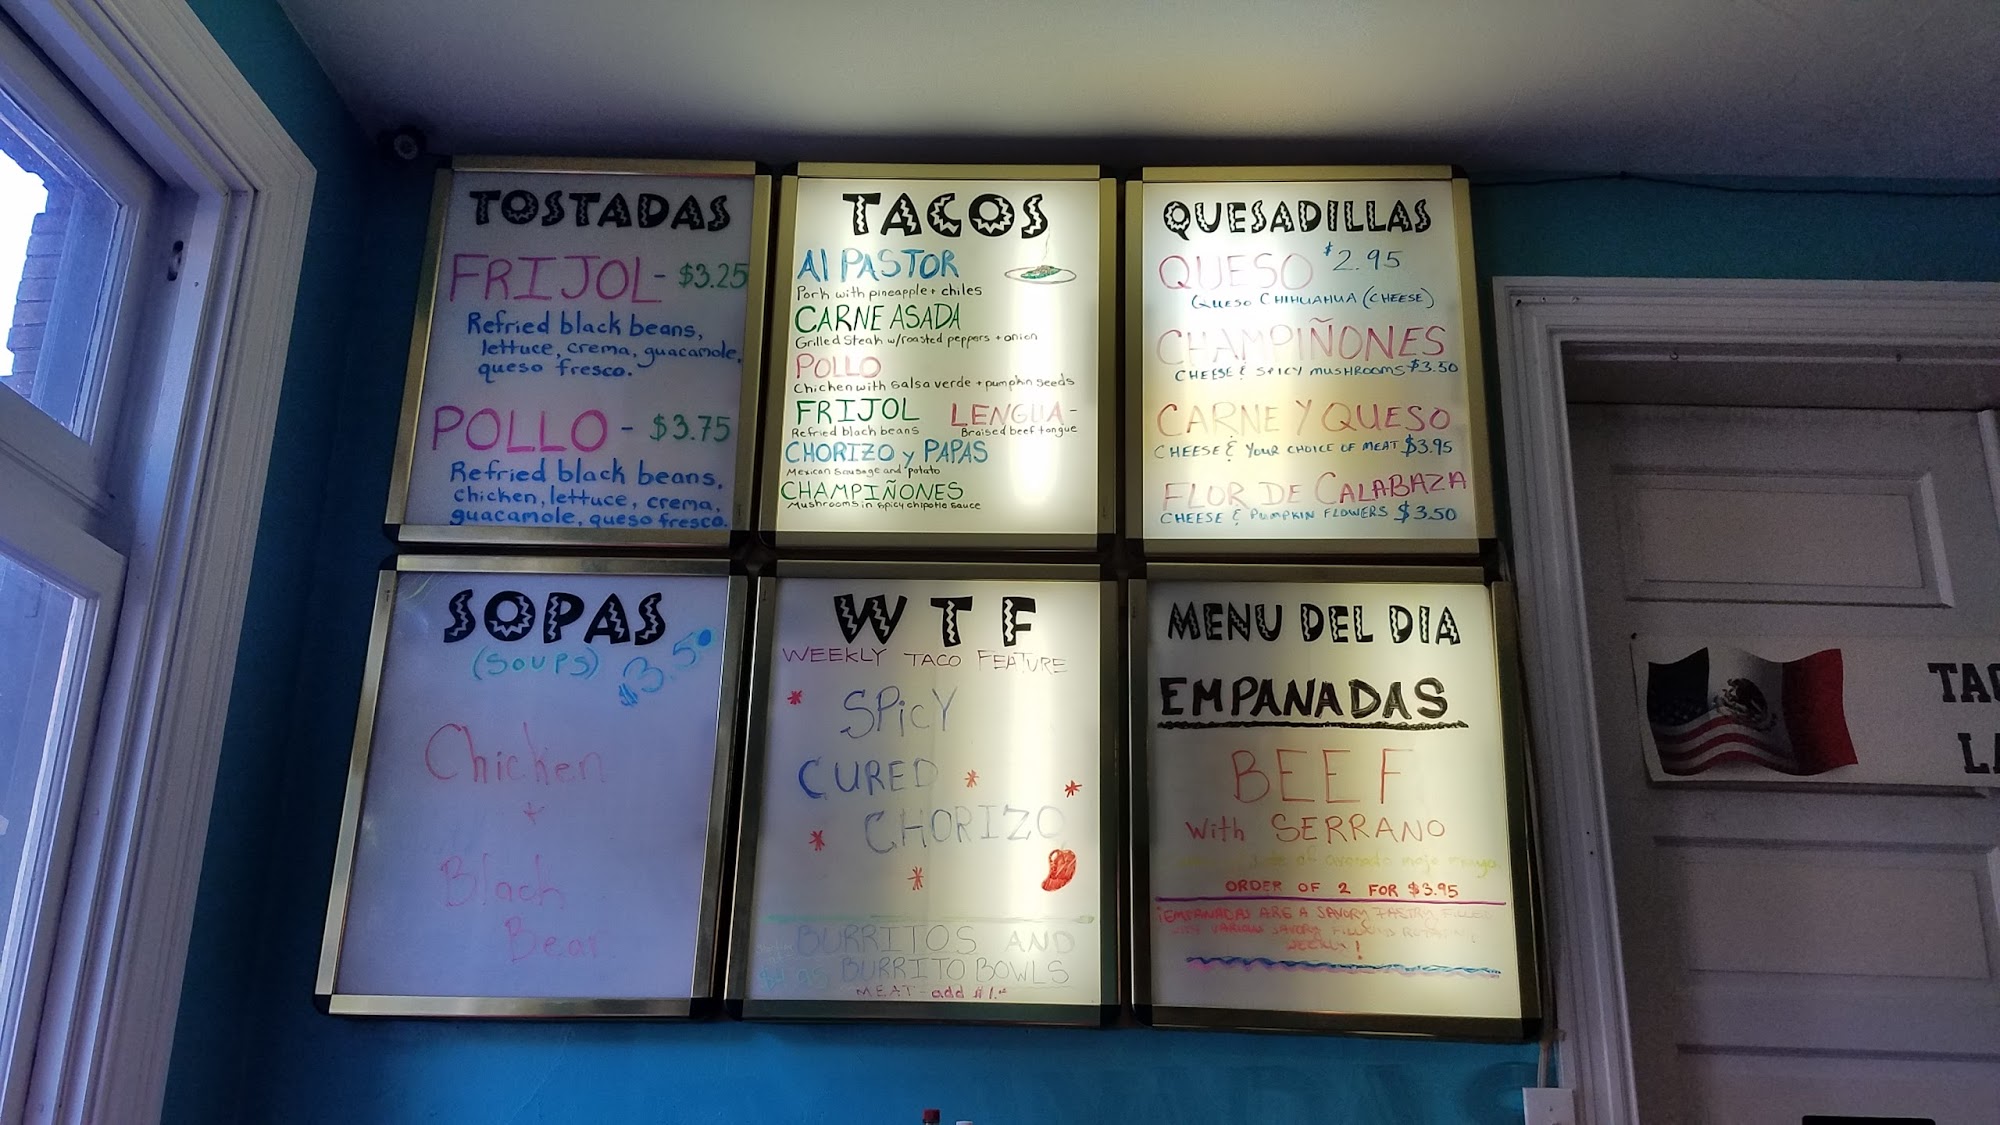 TOSTADAS
FRIJOL - $3.25
Refried black beans,
lettuce, crema, guacamole,
queso fresco.
POLLO - $3.75
Refried black beans,
chicken, lettuce, crema,
guacamole, queso fresco.
TACOS
Al PASTOR
Pork with pineapple + chiles
CARNE ASADA
Grilled Steak w/roasted peppers + onion
POLLO
Chicken with salsa verde + pumpkin seeds
FRIJOL LENGUA-
Refried black beans Braised beef tongue
CHORIZO y PAPAS
Mexican sausage and potato
CHAMPIÑONES
Mushrooms in spicy chipotle sauce
QUESADILLAS
QUESO $2.95
QUESO CHIHUAHUA (CHEESE)
CHAMPIÑONES
CHEESE & SPICY MUSHROOMS $3.50
CARNE Y QUESO
CHEESE & YOUR CHOICE OF MEAT $3.95
FLOR DE CALABAZA
CHEESE & PUMPKIN FLOWERS $3.50
SOPAS
(SOUPS) $3.50
Chicken
+
Black
Bean
WTF
WEEKLY TACO FEATURE
SPicY
CURED
CHORIZO
BURRITOS AND
BURRITO BOWLS
MEAT - add $1.00
MENU DEL DIA
EMPANADAS
BEEF
with SERRANO
of avocado mojo mayo
ORDER OF 2 FOR $3.95
¡EMPANADAS ARE A SAVORY PASTRY FILLED
WITH VARIOUS SAVORY FILLINGS ROTATING
WEEKLY!
TAC
LA